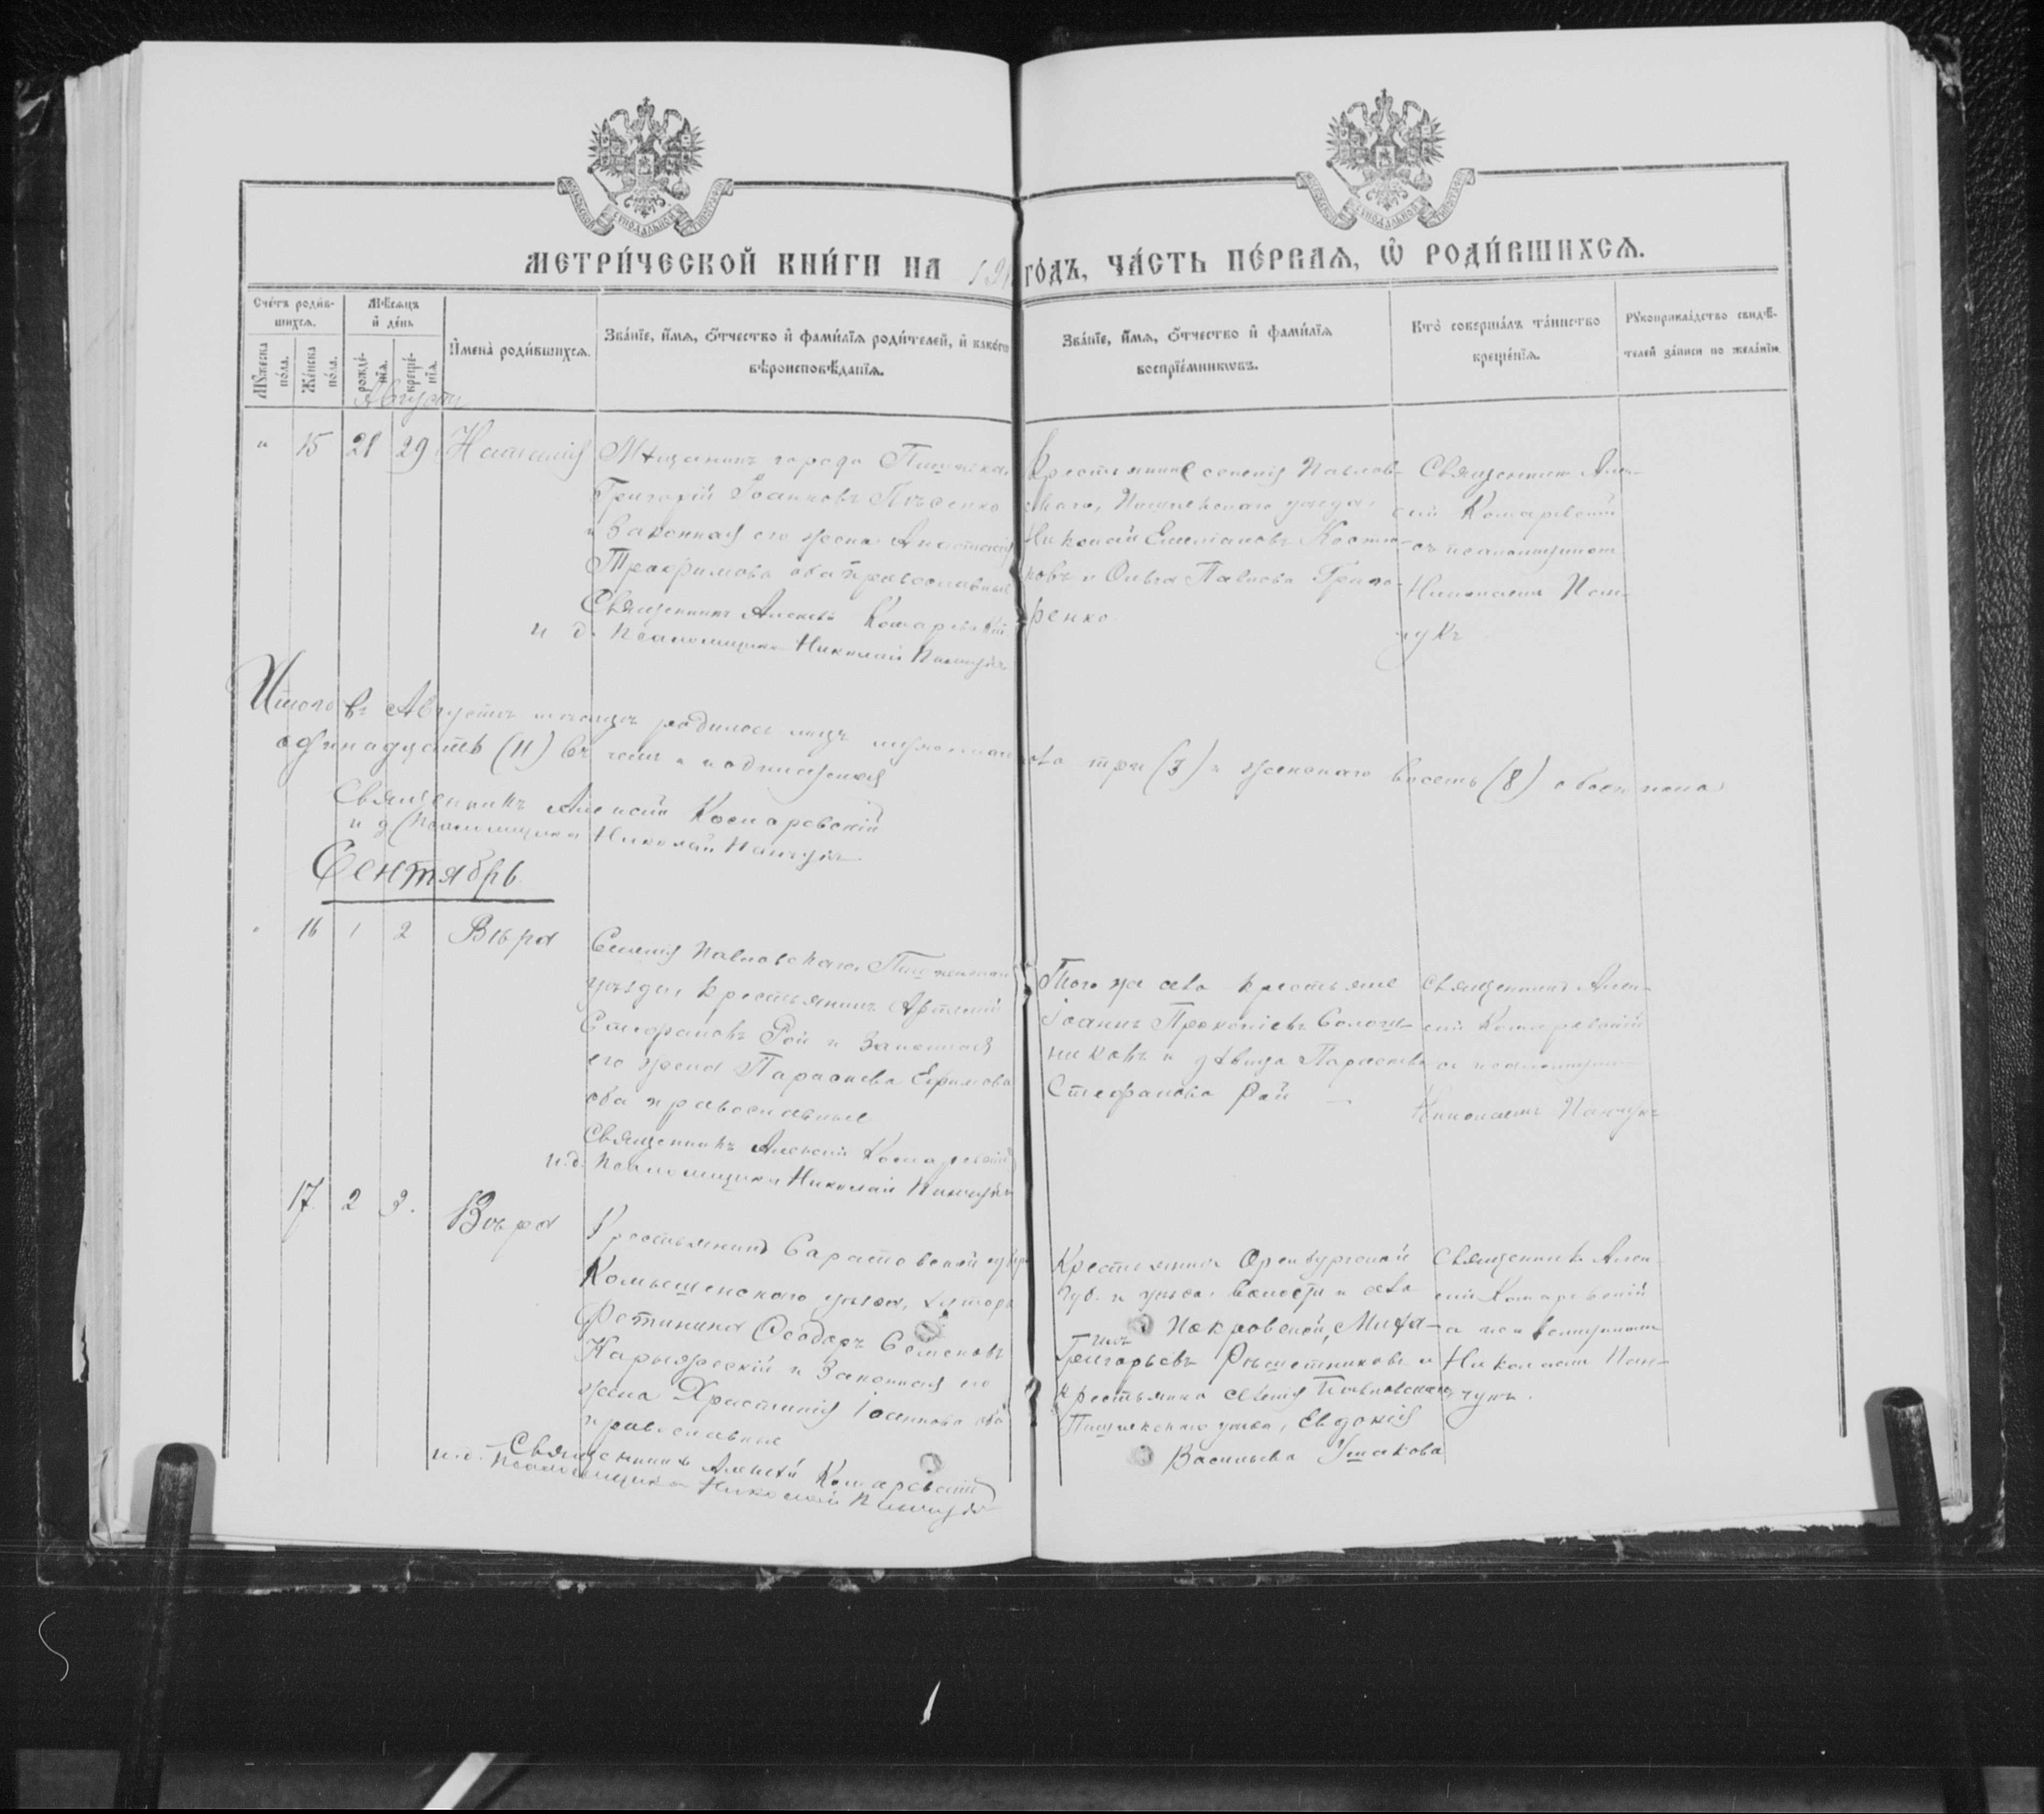 МЕТРИ́ЧЕСКОЙ КНИ́ГИ НА 191 ГО́ДЪ, ЧА́СТЬ ПЕ́РВАѦ, Ѡ РОДИ́ВШИХСѦ.
Сче́тъ роди́вшихсѧ.
Мꙋ́жеска по́ла.
Же́нска по́ла.
Мѣ́сѧцъ и҆ де́нь
рожде́нїѧ.
креще́нїѧ.
И҆мена̀ роди́вшихсѧ.
Зва́нїе, и҆́мѧ, ѻ҆́тчество и҆ фами́лїѧ роди́телей, и҆ како́гѡ
вѣроисповѣ́данїѧ.
Зва́нїе, и҆́мѧ, ѻ҆́тчество и҆ фами́лїѧ
воспрїе́мникѡвъ.
Кто̀ соверша́лъ та́инство
креще́нїѧ.
Рꙋкоприкла́дство свидѣ́-
телей за́писи по жела́нїю
Августъ
" 15 28 29
Мѣщанинъ города Пишпека
Григорій Іоанновъ
и законная его жена Анастасія
Трофимова оба православные
Священникъ Алексій Комаревскій
и. д. Псаломщика Николай
Крестьянинъ селенія Павлов-
скаго, Пишпекскаго уѣзда,
Николай Емеліановъ
ковъ и Ольга Павлова
ренко
Священникъ Алек-
сій Комаревскій
съ псаломщикомъ
Николаемъ
Итого въ Августѣ мѣсяцѣ родилось лицъ мужескаго
пола три (3) и женскаго восемь (8) обоего пола
одинадцать (11) въ чемъ и подписуемся
Священникъ Алексій Комаревскій
и д Псаломщика Николай
Сентябрь
" 16 1 2 Вѣра
Селенія Павловскаго, Пишпекскаго
уѣзда, крестьянинъ Артемій
Стефановъ Рой и законная
его жена Параскева Ефимова
оба православные
Священникъ Алексій Комаревскій
и.д. Псаломщика Николай
Того же села крестьяне
Іоаннъ Прокопіевъ
никовъ и дѣвица Параскева
Стефанова Рой
Священникъ Алек-
сій Комаревскій
съ псаломщикомъ
Николаемъ
17. 2 3. Вѣра
Крестьянинъ Саратовской губер
Камышенскаго уѣзда, хутора
Фетинина Ѳеодоръ Семеновъ
и законная его
жена Христинія Іоаннова оба
православные
Священникъ Алексѣй Комаревскій
и.д. Псаломщика Николай
Крестьянинъ Оренбургской
губ. и уѣзда, волости и села
Покровской,
Григорьевъ Рѣшетниковъ и
крестьянка селенія Павловскаго,
Пишпекскаго уѣзда, Евдокія
Васильева Ушакова
Священникъ Алек-
сій Комаревскій
съ псаломщикомъ
Николаемъ